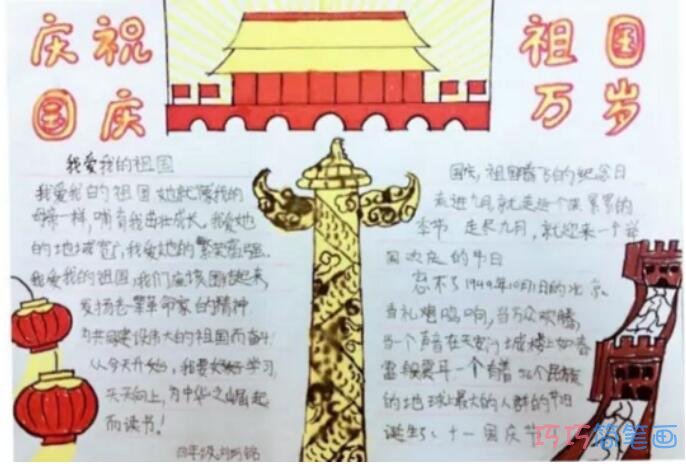 庆祝
国庆
祖国
万岁
我爱我的祖国
我爱我的祖国,她就像我的
母亲一样,哺育我茁壮成长。我爱她
的地域宽广,我爱她的繁荣富强。
我爱我的祖国,我们应该团结起来,
发扬老一辈革命家的精神
为共同建设伟大的祖国而奋斗
从今天开始,我要好好学习,
天天向上,为中华之崛起
而读书!
四年级
国庆,祖国腾飞的纪念日
走进九月,就走进个果累累的
季节 走尽九月,就迎来一个举
国欢庆的节日
忘不了1949年10月1日的北京。
当礼炮鸣响,当万众欢腾,
当一个声音在天安门城楼上如春
雷般震耳 一个有着56个民族
的地球上最大的人群的节日
诞生了:十一国庆节
巧巧简笔画